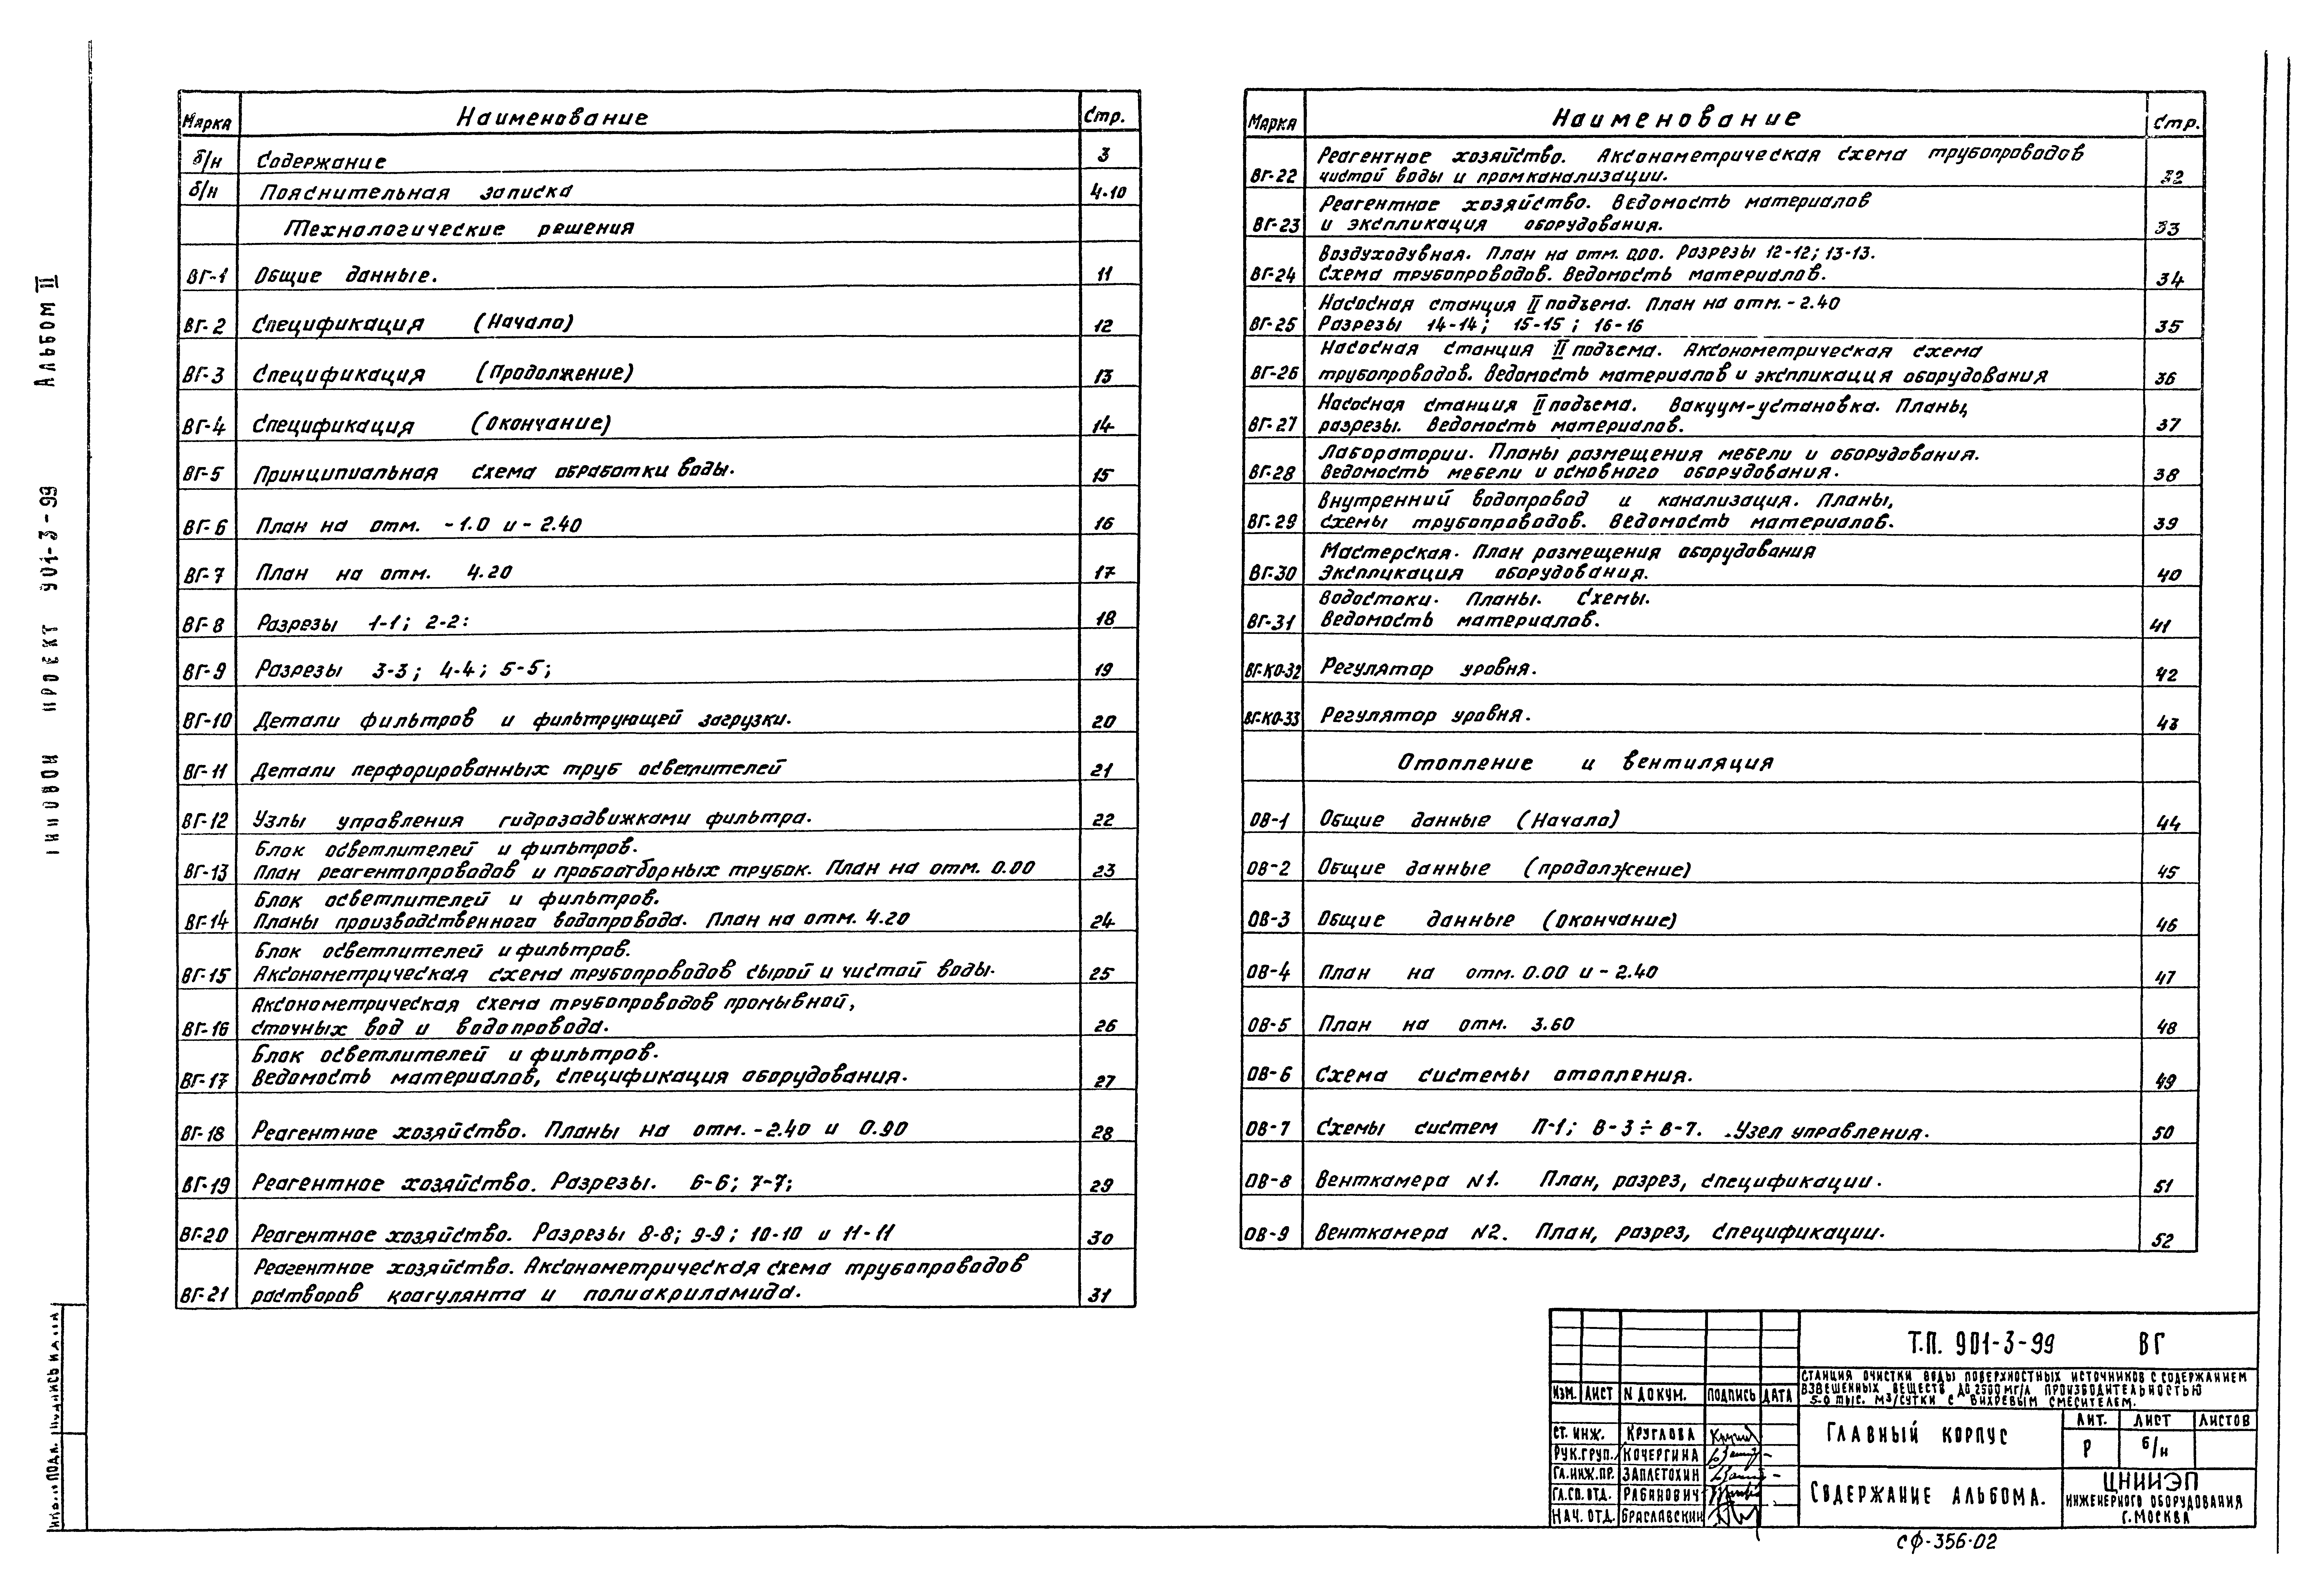 Альбом II
Типовой проект 901-3-99
Марка Наименование Стр.
б/н Содержание 3
б/н Пояснительная записка 4-10
Технологические решения
ВГ-1 Общие данные. 11
ВГ-2 Спецификация (Начало) 12
ВГ-3 Спецификация (Продолжение) 13
ВГ-4 Спецификация (Окончание) 14
ВГ-5 Принципиальная схема обработки воды. 15
ВГ-6 План на отм. -1.0 и -2.40 16
ВГ-7 План на отм. 4.20 17
ВГ-8 Разрезы 1-1; 2-2: 18
ВГ-9 Разрезы 3-3; 4-4; 5-5; 19
ВГ-10 Детали фильтров и фильтрующей загрузки. 20
ВГ-11 Детали перфорированных труб осветлителей 21
ВГ-12 Узлы управления гидрозадвижками фильтра. 22
Блок осветлителей и фильтров.
ВГ-13 План реагентопроводов и пробоотборных трубок. План на отм. 0.00 23
Блок осветлителей и фильтров.
ВГ-14 Планы производственного водопровода. План на отм. 4.20 24
Блок осветлителей и фильтров.
ВГ-15 Аксонометрическая схема трубопроводов сырой и чистой воды. 25
Аксонометрическая схема трубопроводов промывной,
ВГ-16 сточных вод и водопровода. 26
Блок осветлителей и фильтров.
ВГ-17 Ведомость материалов, спецификация оборудования. 27
ВГ-18 Реагентное хозяйство. Планы на отм. -2.40 и 0.90 28
ВГ-19 Реагентное хозяйство. Разрезы. 6-6; 7-7; 29
ВГ-20 Реагентное хозяйство. Разрезы 8-8; 9-9; 10-10 и 11-11 30
Реагентное хозяйство. Аксонометрическая схема трубопроводов
ВГ-21 растворов коагулянта и полиакриламида. 31
Марка Наименование Стр.
Реагентное хозяйство. Аксонометрическая схема трубопроводов
ВГ-22 чистой воды и промканализации. 32
Реагентное хозяйство. Ведомость материалов
ВГ-23 и экспликация оборудования. 33
Воздуходувная. План на отм. 0.00. Разрезы 12-12; 13-13.
ВГ-24 Схема трубопроводов. Ведомость материалов. 34
Насосная станция II подъема. План на отм. -2.40
ВГ-25 Разрезы 14-14; 15-15; 16-16 35
Насосная станция II подъема. Аксонометрическая схема
ВГ-26 трубопроводов. Ведомость материалов и экспликация оборудования 36
Насосная станция II подъема. Вакуум-установка. Планы,
ВГ-27 разрезы. Ведомость материалов. 37
Лаборатории. Планы размещения мебели и оборудования.
ВГ-28 Ведомость мебели и основного оборудования. 38
Внутренний водопровод и канализация. Планы,
ВГ-29 схемы трубопроводов. Ведомость материалов. 39
Мастерская. План размещения оборудования
ВГ-30 Экспликация оборудования. 40
Водостоки. Планы. Схемы.
ВГ-31 Ведомость материалов. 41
ВГ-КО-32 Регулятор уровня. 42
ВГ-КО-33 Регулятор уровня. 43
Отопление и вентиляция
ОВ-1 Общие данные (Начало) 44
ОВ-2 Общие данные (продолжение) 45
ОВ-3 Общие данные (окончание) 46
ОВ-4 План на отм. 0.00 и -2.40 47
ОВ-5 План на отм. 3.60 48
ОВ-6 Схема системы отопления. 49
ОВ-7 Схемы систем П-1; В-3÷В-7. Узел управления. 50
ОВ-8 Венткамера N1. План, разрез, спецификации. 51
ОВ-9 Венткамера N2. План, разрез, спецификации. 52
Т.П. 901-3-99 ВГ
Станция очистки воды поверхностных источников с содержанием
взвешенных веществ до 2500 мг/л производительностью
тыс. м³/сутки с вихревым смесителем.
Изм. Лист N докум. Подпись Дата
Ст. инж. Круглова
Рук. груп. Кочергина
Гл. инж. пр. Заплетохин
Гл. сп. отд. Рабинович
Нач. отд. Браславский
Главный корпус
Лит. Лист Листов
Р б/н
Содержание альбома.
ЦНИИЭП
инженерного оборудования
г. Москва
СФ-356-02